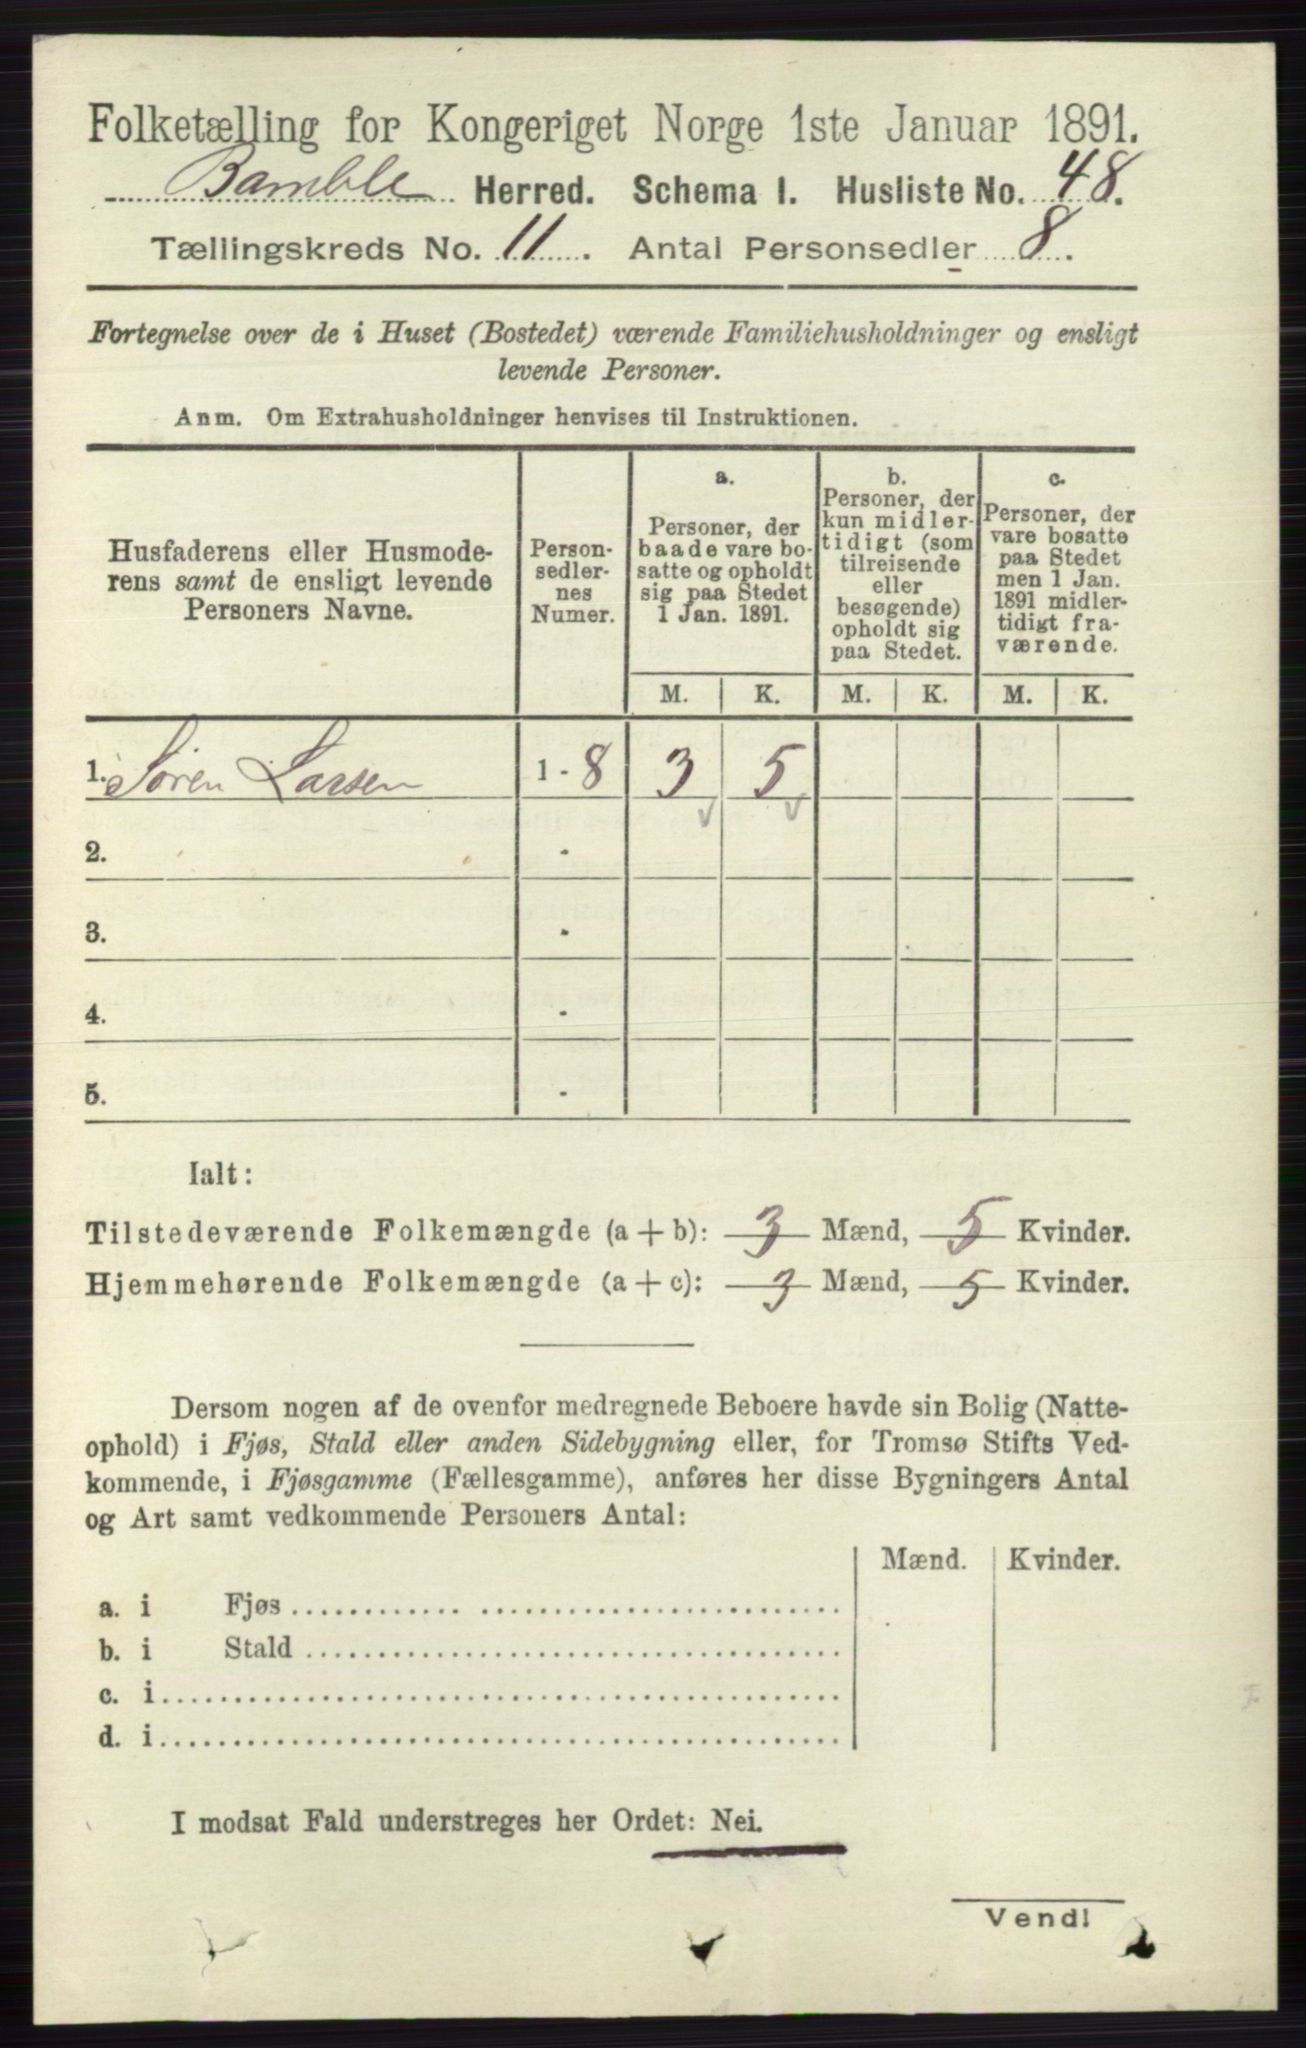 Folketælling for Kongeriget Norge 1ste Januar 1891.
Bamble Herred. Schema I. Husliste No. 48.
Tællingskreds No. 11. Antal Personsedler 8.
Fortegnelse over de i Huset (Bostedet) værende Familiehusholdninger og ensligt
levende Personer.
Anm. Om Extrahusholdninger henvises til Instruktionen.
Husfaderens eller Husmode-
rens samt de ensligt levende
Personers Navne.
Person-
sedler-
nes
Numer.
a.
Personer, der
baade vare bo-
satte og opholdt
sig paa Stedet
1 Jan. 1891.
b.
Personer, der
kun midler-
tidigt (som
tilreisende
eller
besøgende)
opholdt sig
paa Stedet.
c.
Personer, der
vare bosatte
paa Stedet
men 1 Jan.
1891 midler-
tidigt fra-
værende.
M. K. M. K. M. K.
1. Søren Larsen 1 - 8 3 5
2. -
3. -
4. -
5. -
Ialt:
Tilstedeværende Folkemængde (a + b): 3 Mænd, 5 Kvinder.
Hjemmehørende Folkemængde (a + c): 3 Mænd, 5 Kvinder.
Dersom nogen af de ovenfor medregnede Beboere havde sin Bolig (Natte-
ophold) i Fjøs, Stald eller anden Sidebygning eller, for Tromsø Stifts Ved-
kommende, i Fjøsgamme (Fællesgamme), anføres her disse Bygningers Antal
og Art samt vedkommende Personers Antal:
Mænd. Kvinder.
a. i Fjøs
b. i Stald
c. i
d. i
I modsat Fald understreges her Ordet: Nei.
Vend!